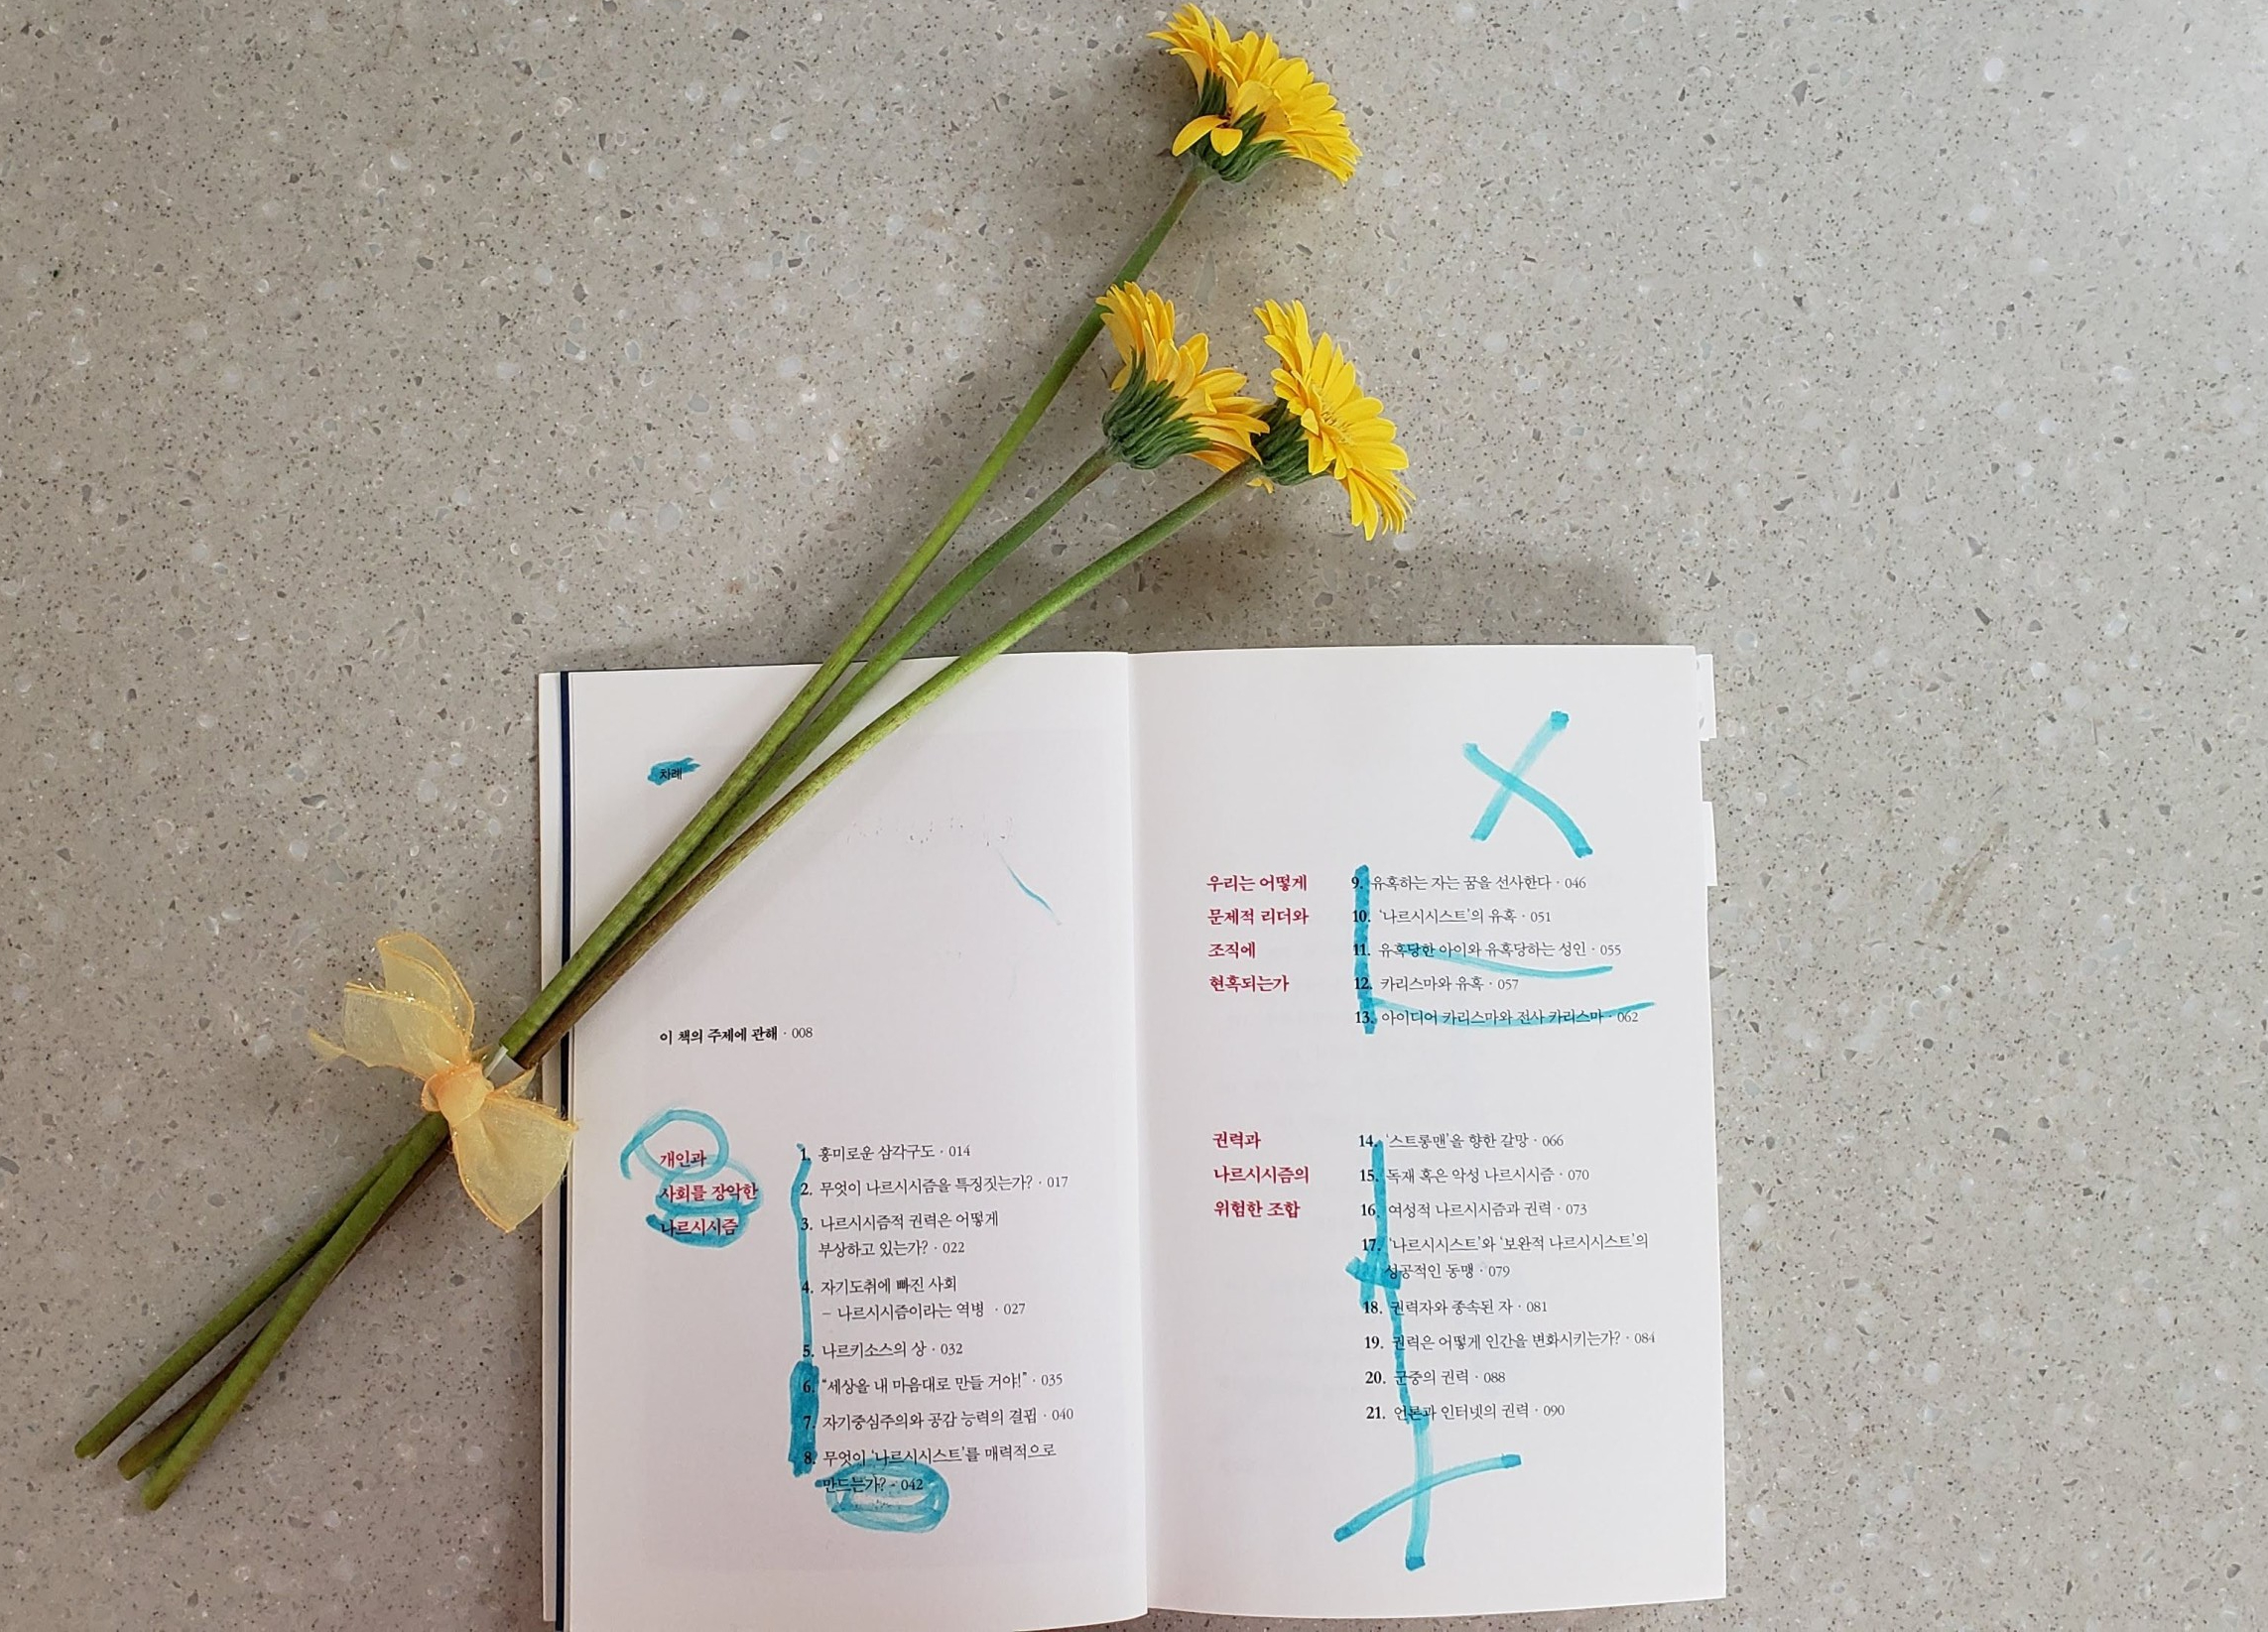 차례
이 책의 주제에 관해 · 008
개인과
사회를 장악한
나르시시즘
1. 흥미로운 삼각구도 · 014
2. 무엇이 나르시시즘을 특징짓는가? · 017
3. 나르시시즘적 권력은 어떻게
부상하고 있는가? · 022
4. 자기도취에 빠진 사회
– 나르시시즘이라는 역병 · 027
5. 나르키소스의 상 · 032
6. “세상을 내 마음대로 만들 거야!” · 035
7. 자기중심주의와 공감 능력의 결핍 · 040
8. 무엇이 ‘나르시시스트’를 매력적으로
만드는가? · 042
우리는 어떻게
문제적 리더와
조직에
현혹되는가
9. 유혹하는 자는 꿈을 선사한다 · 046
10. ‘나르시시스트’의 유혹 · 051
11. 유혹당한 아이와 유혹당하는 성인 · 055
12. 카리스마와 유혹 · 057
13. 아이디어 카리스마와 전사 카리스마 · 062
권력과
나르시시즘의
위험한 조합
14. ‘스트롱맨’을 향한 갈망 · 066
15. 독재 혹은 악성 나르시시즘 · 070
16. 여성적 나르시시즘과 권력 · 073
17. ‘나르시시스트’와 ‘보완적 나르시시스트’의
성공적인 동맹 · 079
18. 권력자와 종속된 자 · 081
19. 권력은 어떻게 인간을 변화시키는가? · 084
20. 군중의 권력 · 088
21. 언론과 인터넷의 권력 · 090